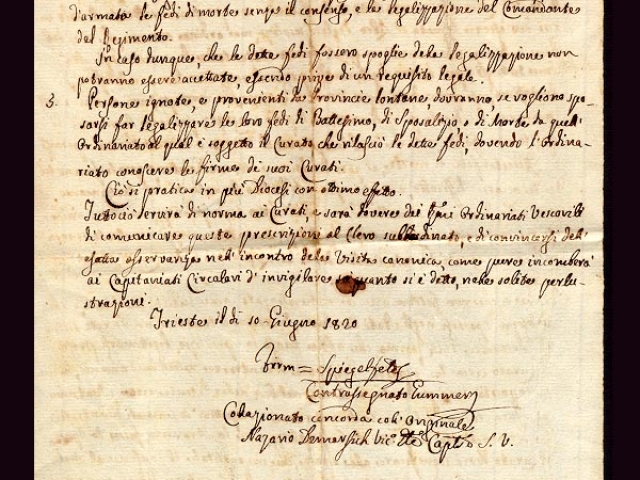 d'armata le fedi di morte senza il consenso, e la legalizzazione del Comandante
del Regimento.
In caso dunque, che le dette fedi fossero spoglie dela legalizzazione non
potranno essere accettate, essendo prive di un requisito legale.
3. Persone ignote, e provenienti da Provincie lontane, dovranno se vogliono spo-
sarsi far legalizzare le loro fedi di Battesimo, di Sposalizio o di Morte da quell'
Ordinariato al qual è soggetto il Curato che rilasciò le dette fedi, dovendo l'Ordina-
riato conoscere le firme de suoi Curati.
Ciò si pratica in più Diocesi con ottimo effetto.
Tuttociò servirà di norma ai Curati, e sarà dovere dei Ordinariati Vescovili
di comunicare questa prescrizione al Clero subordinato, e di convincersi dell'
esatta osservanza nell'incontro dela Visita canonica, come pure incomberà
ai Capitaniati Circolari d'invigilare quanto si è detto, nele solite perlu-
strazioni.
Trieste il di 10 Giugno 1820
Firm = Spiegelfeld
Contrassegnato
Colazionato concorda col' Originale
Nazario S. V.